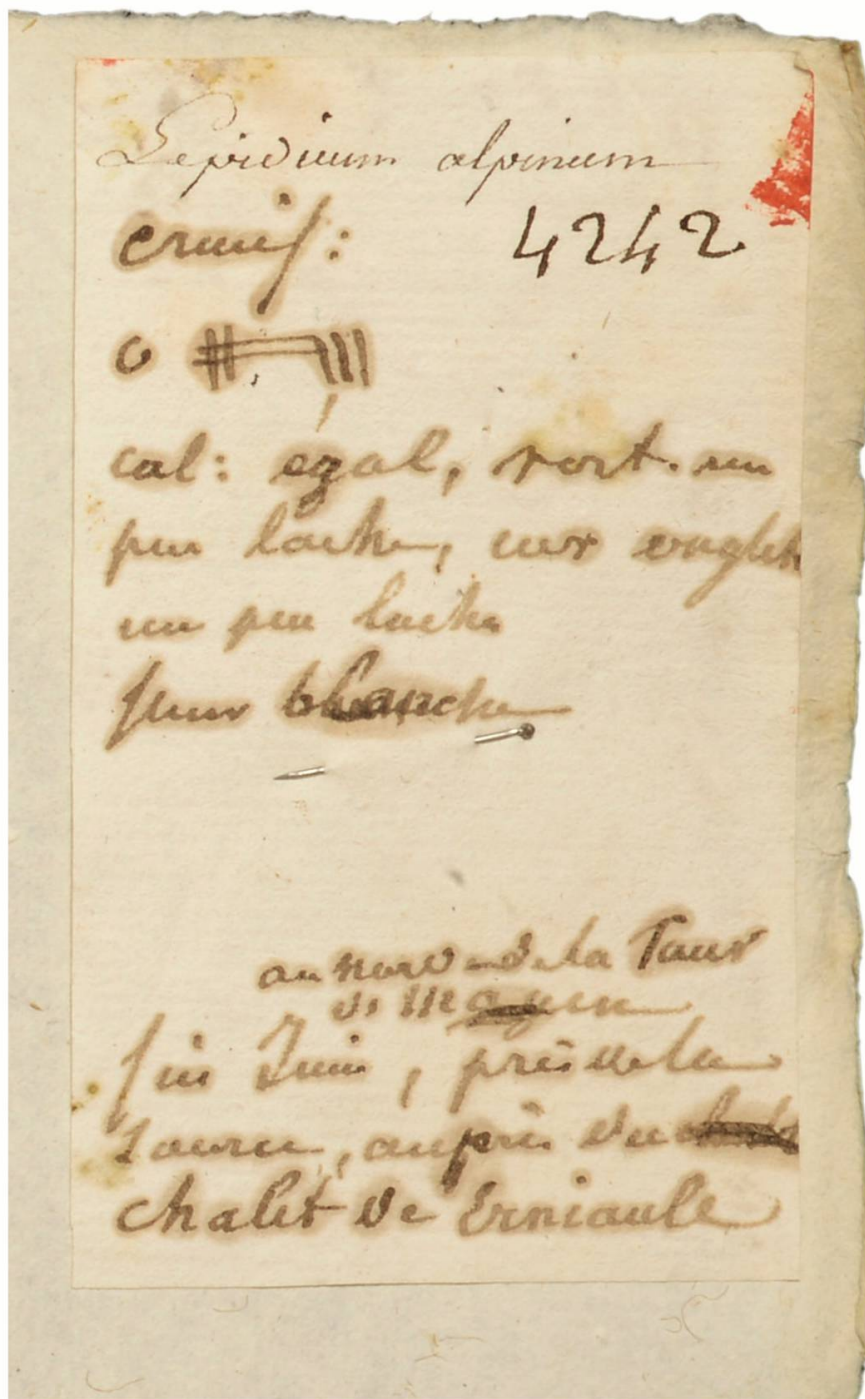 Lepidium alpinum
crucif: 4242
cal: égal, un
peu lache,
un peu lache
fleur blanche
au nord de la Tour
de Mayen
fin Juin, près de la
source, auprès du
chalet de